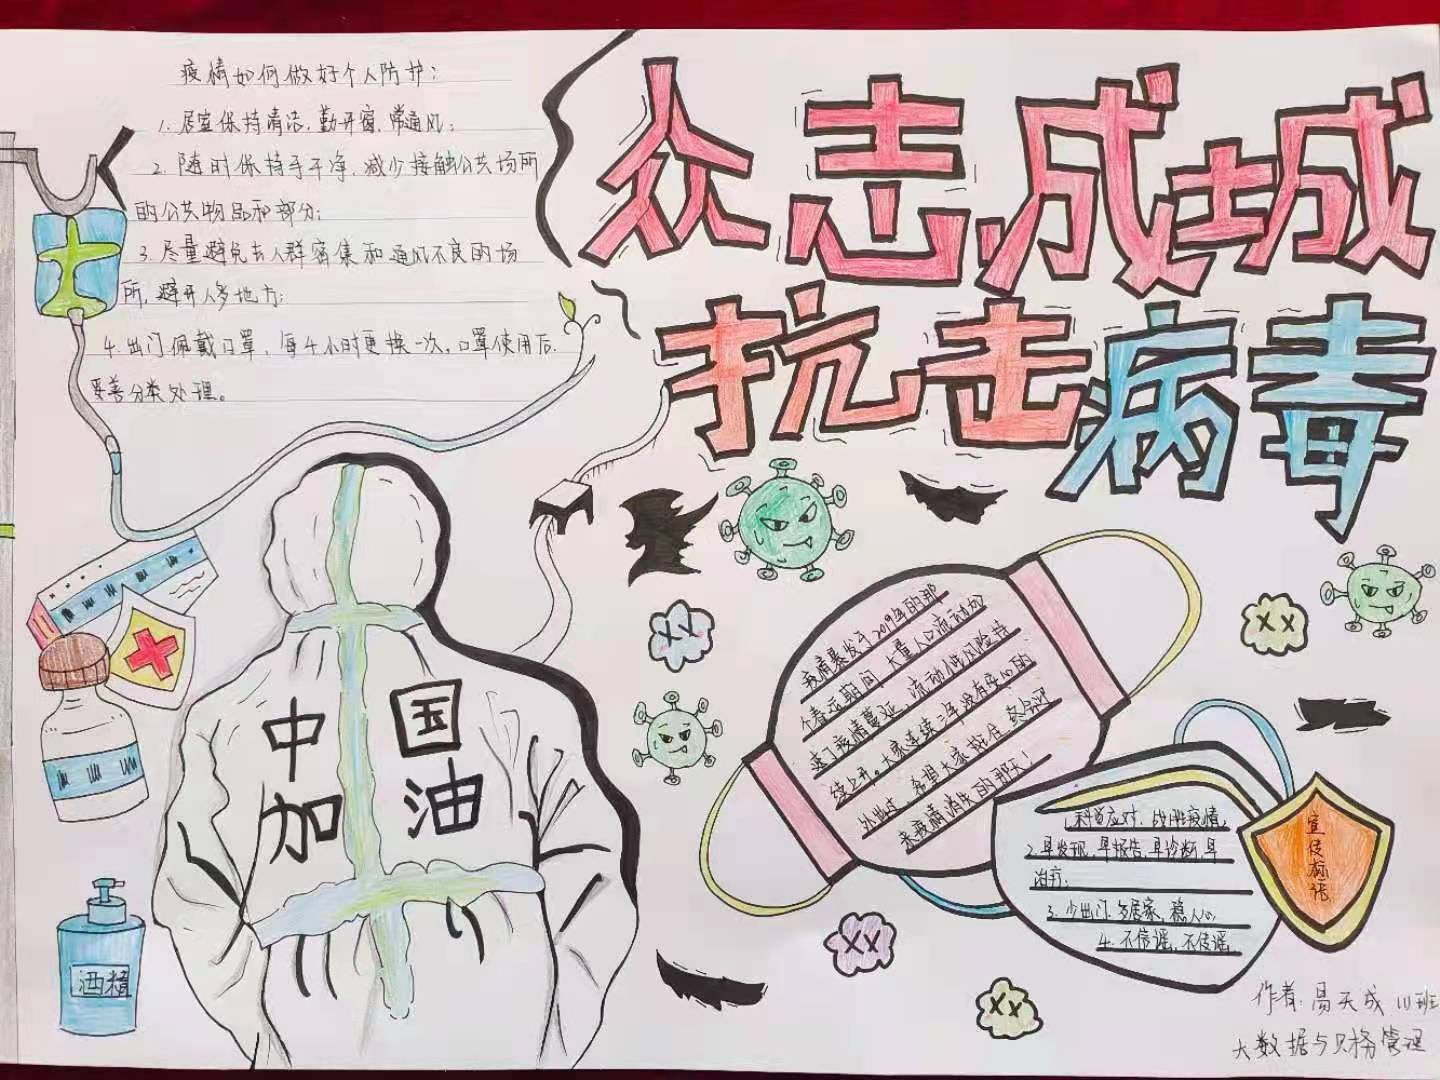 众志成城
抗击病毒
疫情如何做好个人防护:
1. 居室保持清洁,勤开窗,常通风;
2. 随时保持手干净,减少接触公共场所
的公共物品和部分;
3. 尽量避免去人群密集和通风不良的场
所,避开人多地方;
4. 出门佩戴口罩,每4小时更换一次,口罩使用后
妥善分类处理。
中国
加油
酒精
疫情暴发于2019年的那
个春运期间,大量人口流动加
速了疫情蔓延,流动使风险持
续上升。大家连续三年没有安心的
外出过,希望大家挺住,终会迎
来疫情消失的那天!
1.科学应对,战胜疫情,
2.早发现,早报告,早诊断,早
治疗;
3. 少出门,多居家,稳人心
4. 不信谣,不传谣
宣传标语
作者:高天成 10班
大数据与财务管理